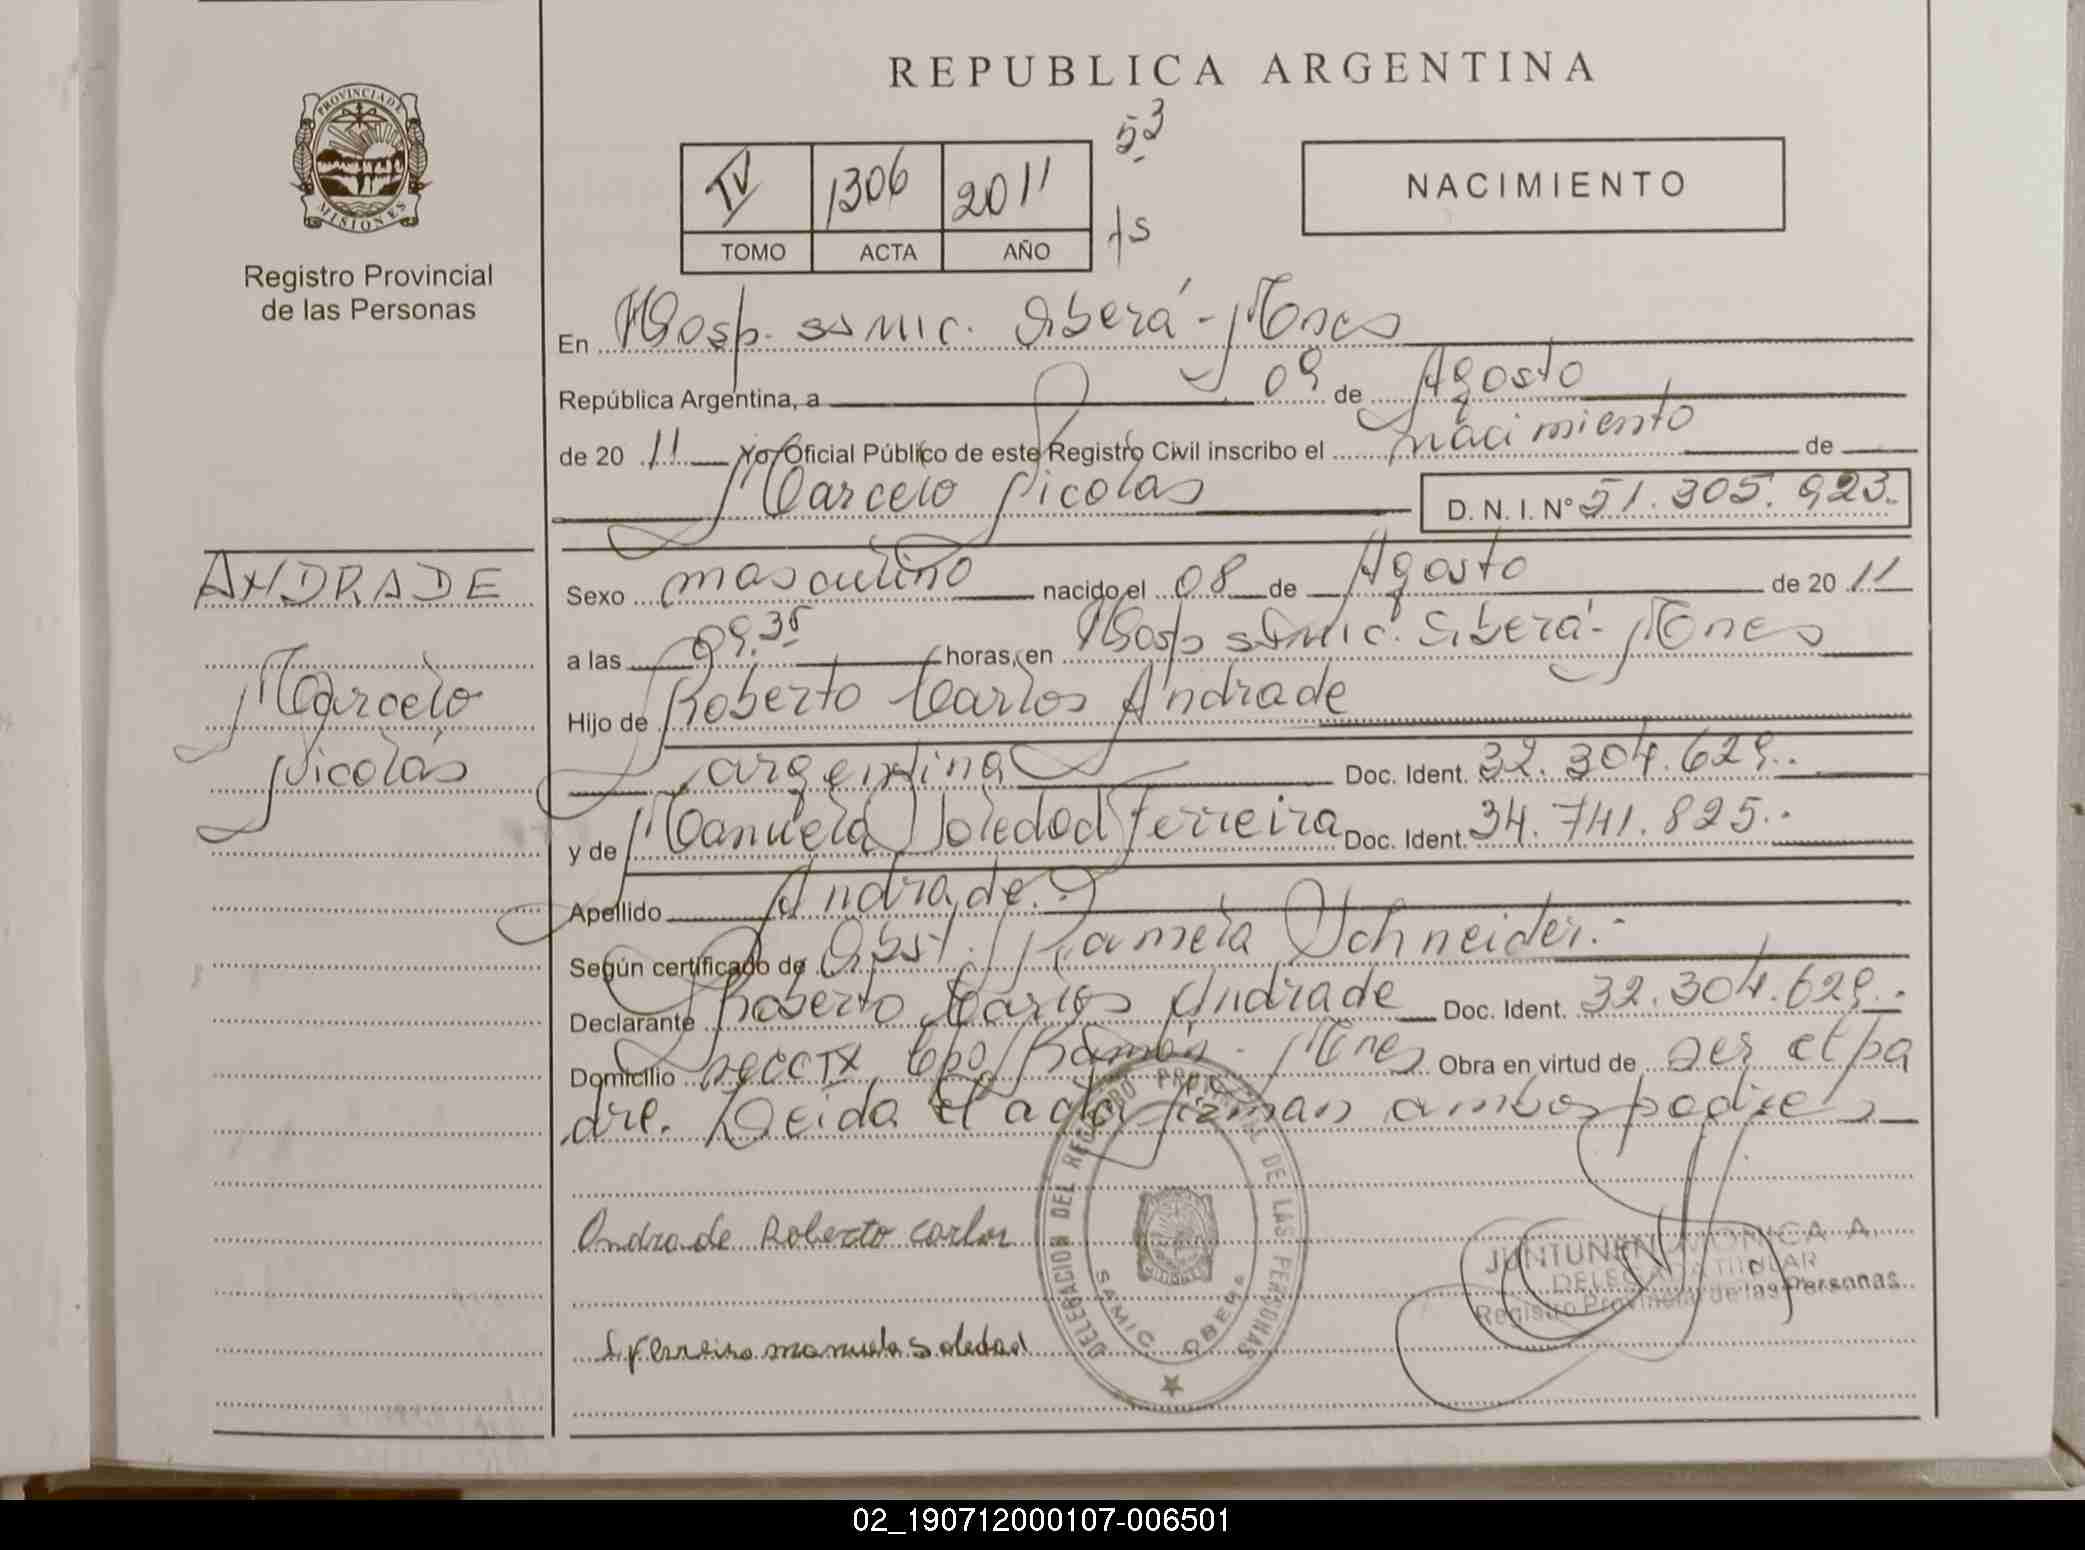 REPUBLICA ARGENTINA
PROVINCIA DE
MISIONES
Registro Provincial
de las Personas
53
IV 1306 2011
TOMO ACTA AÑO
NACIMIENTO
En Hosp. SAMIC. Oberá - Mnes
República Argentina, a 09 de Agosto
de 20 11 Yo Oficial Público de este Registro Civil inscribo el nacimiento de
Marcelo Nicolas D. N. I. N° 51.305.923.
ANDRADE
Marcelo
Nicolás
Sexo masculino nacido el 08 de Agosto de 20 11
a las 09.35 horas, en Hosp SAMIC. Oberá - Mnes
Hijo de Roberto Carlos Andrade
argentina Doc. Ident. 32.304.629.
y de Manuela Soledad Ferreira Doc. Ident. 34.741.825.
Apellido Andrade.
Según certificado de Obst. Pamela Schneider.-
Declarante Roberto Carlos Andrade Doc. Ident. 32.304.629.
Domicilio Cpo Ramón - Mnes Obra en virtud de ser el pa
dre. Leida el acta firman ambos padres
Andrade Roberto Carlos
Ferreira manuela Soledad
DELEGACION DEL REGISTRO PROVINCIAL DE LAS PERSONAS
SAMIC OBERA
JUNTUNEN MONICA A.
DELEGADA TITULAR
Registro Provincial de las Personas
02_190712000107-006501